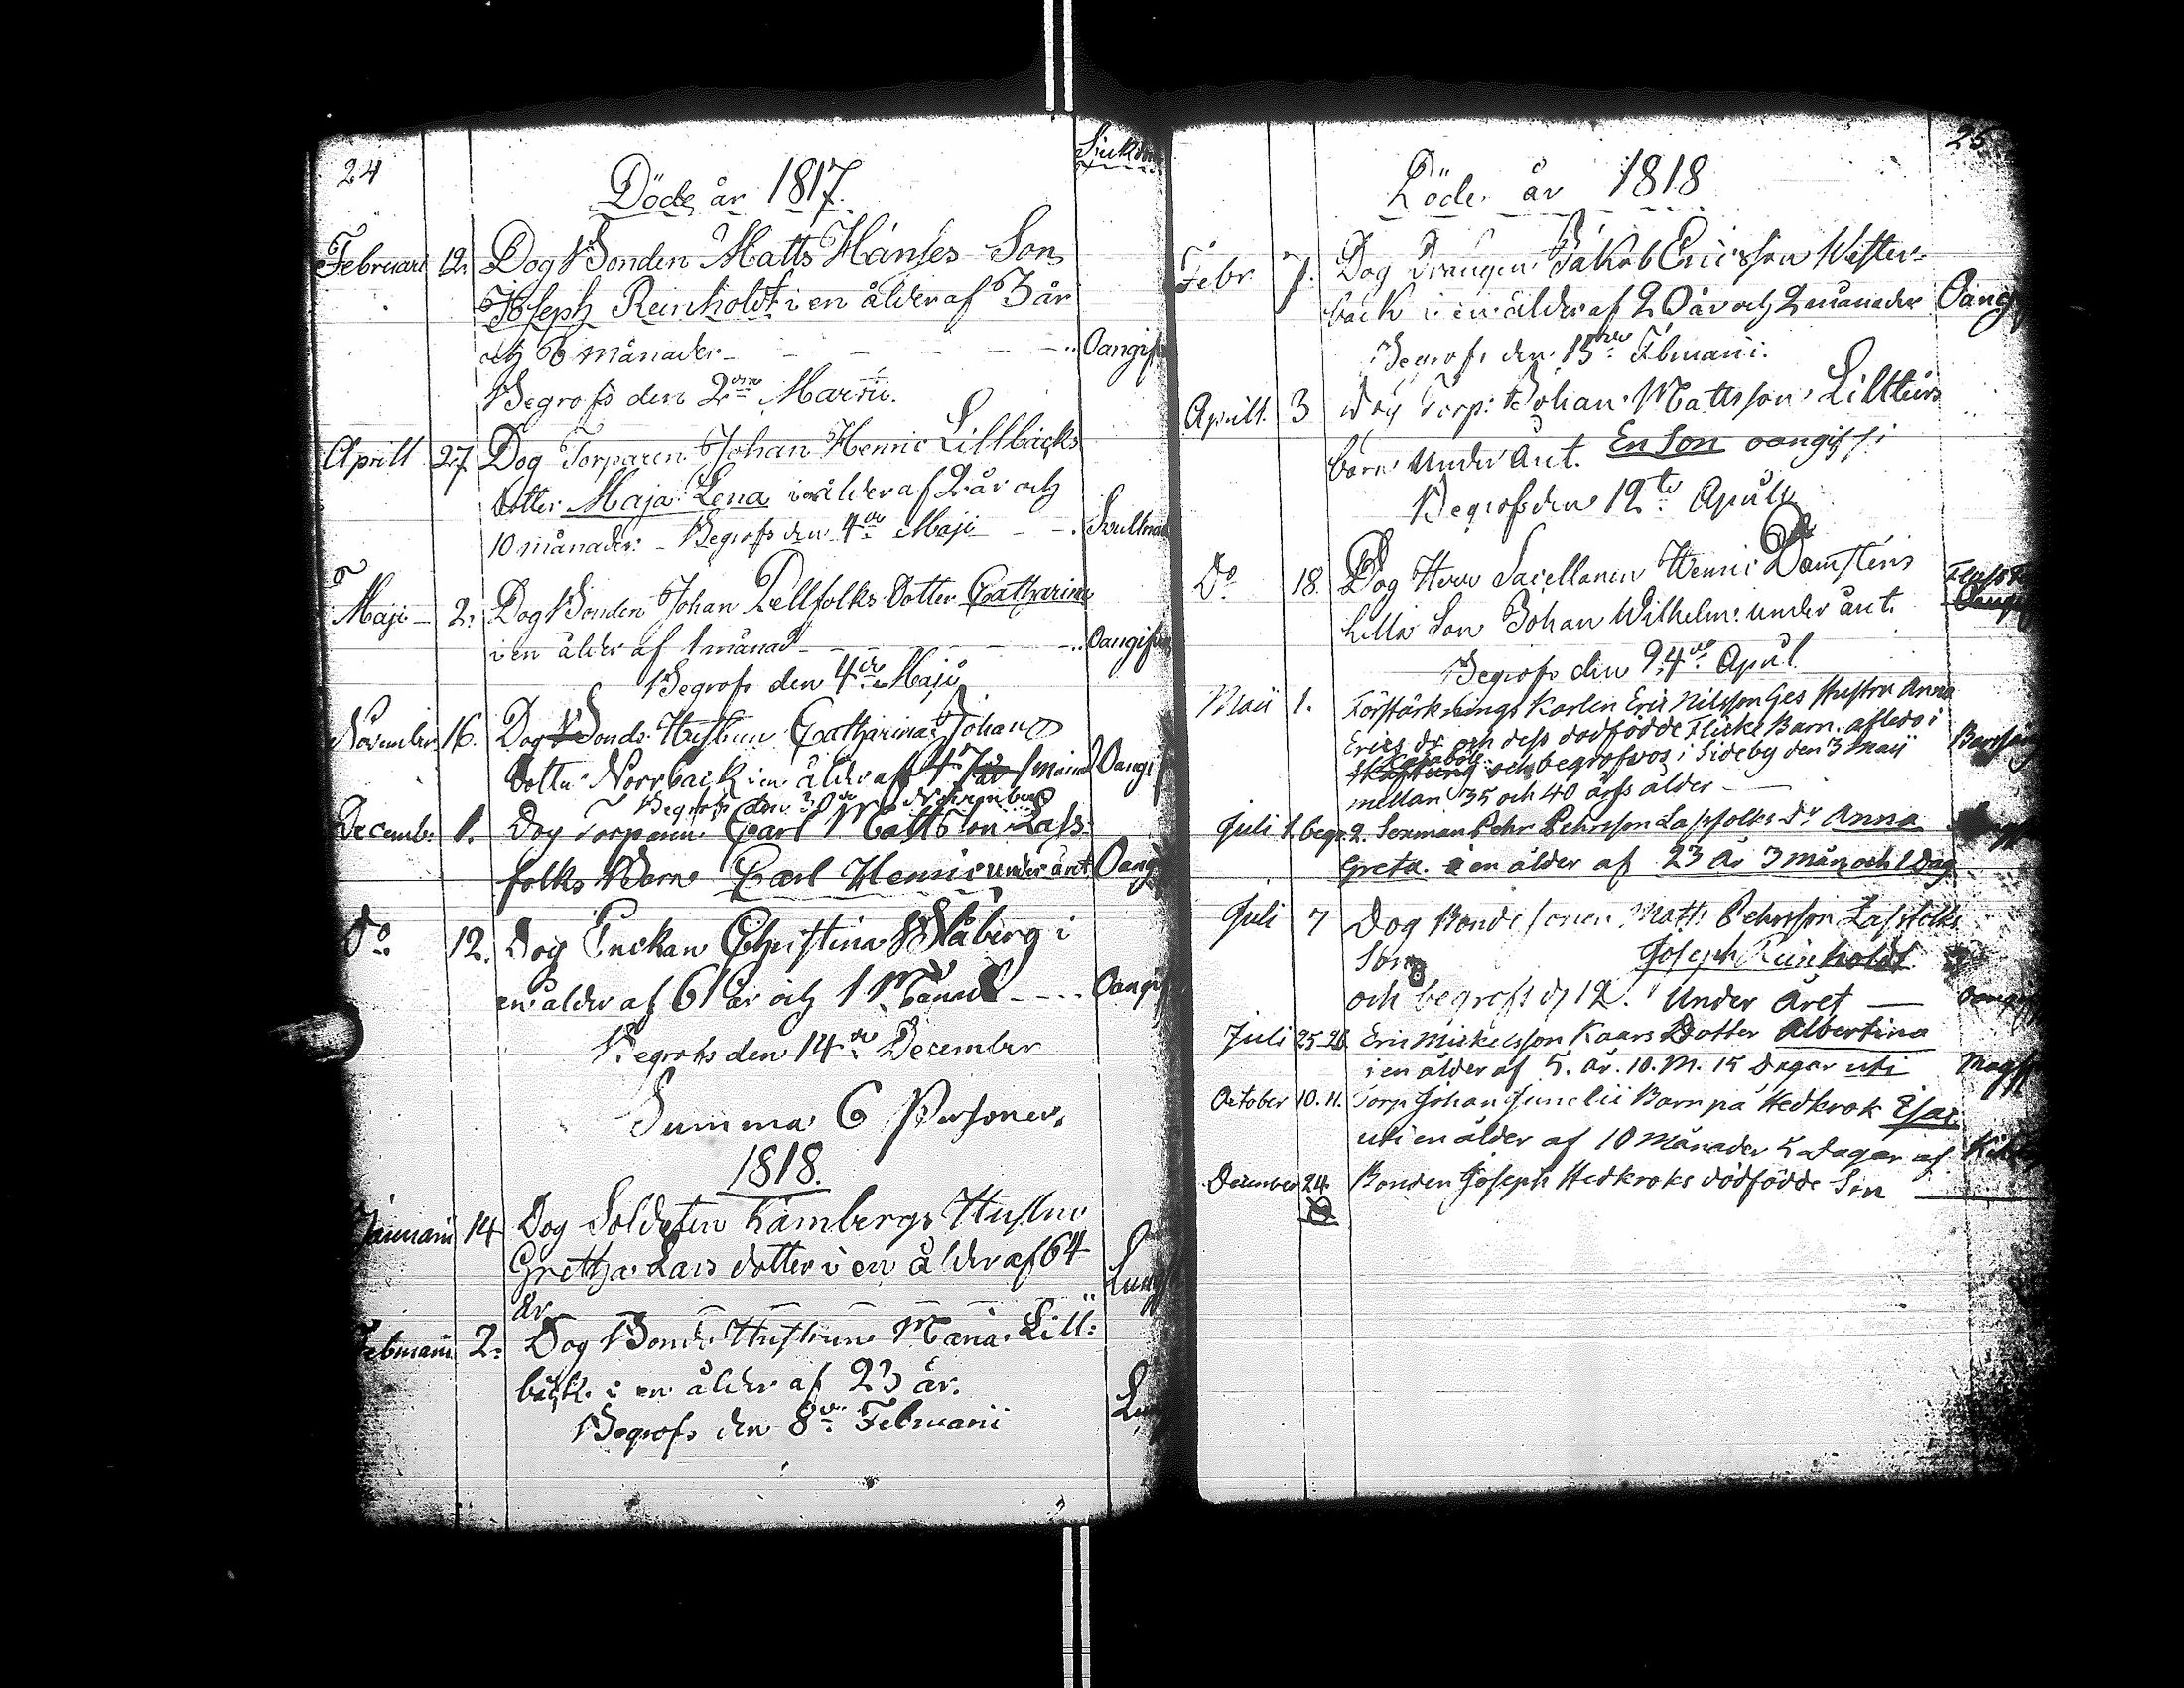 24
Siukdom
Döde år 1817.
Februari 12. Dog Bonden Matts Hanses Son
Joseph Reinholdt i en ålder af 3 år
och 6 månader Oangif
Begrofs den 2dra Martii.
Aprill 27 Dog Torparen Johan Henric Lillbäcks
dotter Maja Lena i en ålder af 2 år och
10 månader. Begrofs den 4de Maji
Maji 2. Dog Bonden Johan Dellfolks Dotter Catharina
i en ålder af 1 månad Oangifven
Begrofs den 4de Maji
November 16. Dog Bonds Hustrun Catharina Johans
dotter Norrback i en ålder af 47 år 1 månad Oangif
Begrofs den 30de November
Decemb: 1. Dog Torparen Carl Mattsson Lass-
folks Barn Carl Henric under året Oang
Do 12. Dog Enckan Christina Blåberg i
en ålder af 61 år och 1 Månad Oangif
Begrofs den 14de December
Summa 6 Personer.
1818.
Januarii 14 Dog Soldaten Kämbergs Hustru
Gretha Lars dotter i en ålder af 64 Lung
år
Februarii 2. Dog Bonde Hustrun Maria Lill=
bäck i en ålder af 23 år.
Begrofs den 8de Februarii
25
Döde år 1818
Febr 7. Dog Drängen Jakob Ericsson Wester=
back i en ålder af 20 år och 2 månader Oang
Begrofs den 15de Februarii.
Aprill 3 Dog Torp: Johan Mattsson Lilltiers
barn under året. En Son oangifs:
Begrofs den 12te Aprill
Do 18. Dog Herr Sacellanen Henric Damsténs
lilla Son Johan Wilhelm under året.
Begrofs den 24de April
Maii 1. Förstärknings Karlen Eric Nilsson Ges Hustru Anna
Erics dr och dess dödfödde Flicke Barn. afledo i
och begrofvos i Sideby den 3 Maij
mellan 35 och 40 års ålder
Juli 1. begr. 2. Sexman Pehr Pehrsson Lassfolks Dr Anna
Greta. i en ålder af 23 år 3 mån och 1 Dag
Juli 7 Dog Bonde sonen Matts Pehrsson Lassfolks
Son Joseph Reinholdt
och begrofs d 12. Under Året
Juli 25-26. Eric Mickelsson Kaars Dotter Albertina
i en ålder af 5. år. 10. M. 15 Dagar uti Magff
October 10. 11. Torp Johan Junelii Barn på Hedkrok Esai
uti en ålder af 10 Månader 5 Dagar af
December 24. Bonden Joseph Hedkroks dödfödde Son